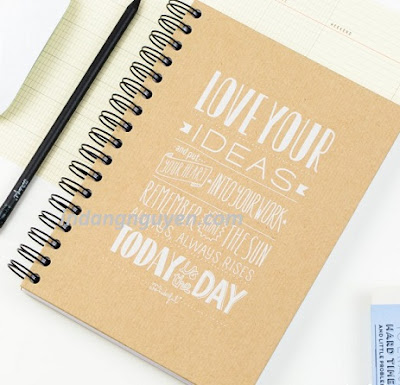 LOVE YOUR
IDEAS
and put
YOUR HEART INTO YOUR WORK
REMEMBER THE SUN
ALWAYS RISES
TODAY is the DAY
indangnguyen.com
HARD TIME
AND LITTLE PROBLEM